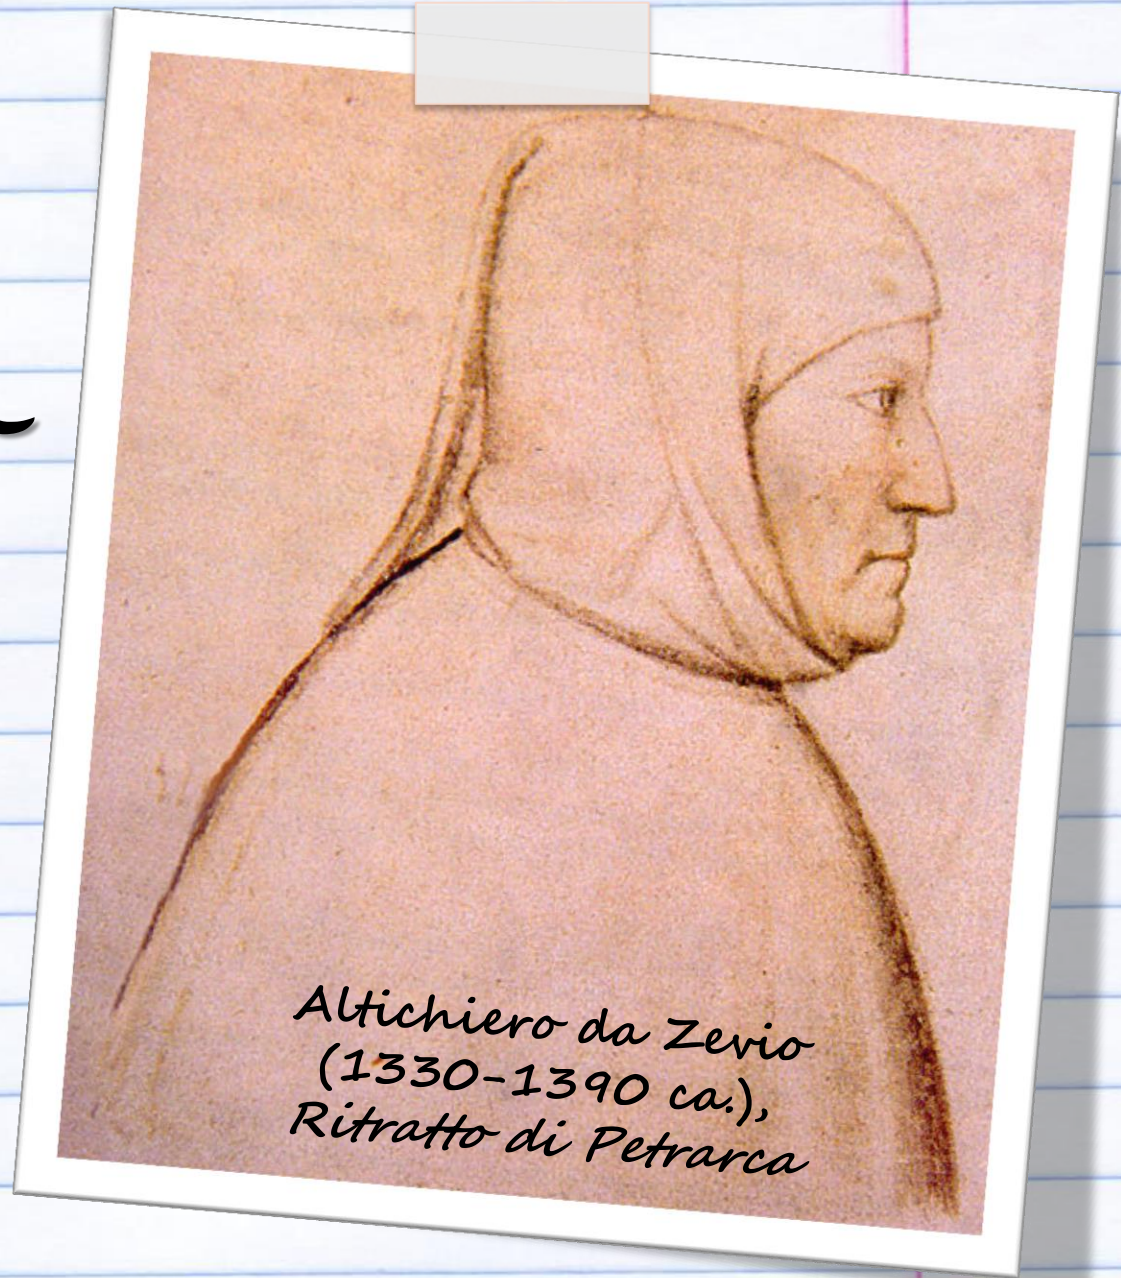 Altichiero da Zevio
(1330-1390 ca.),
Ritratto di Petrarca